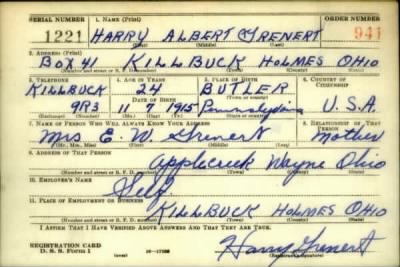 SERIAL NUMBER 1. NAME (Print) ORDER NUMBER
1221 HARRY ALBERT GRENERT 941
(First) (Middle) (Last)
2. ADDRESS (Print)
BOX 41 KILLBUCK HOLMES OHIO
(Number and street or R. F. D. number) (Town) (County) (State)
3. TELEPHONE 4. AGE IN YEARS 5. PLACE OF BIRTH 6. COUNTRY OF CITIZENSHIP
KILLBUCK 24 BUTLER
DATE OF BIRTH
9R3 11 7 1915 Pennsylvania U.S.A.
7. NAME OF PERSON WHO WILL ALWAYS KNOW YOUR ADDRESS 8. RELATIONSHIP OF THAT PERSON
Mrs E. W. Grenert Mother
(Mr., Mrs., Miss) (First) (Middle) (Last)
9. ADDRESS OF THAT PERSON
Applecreek Wayne Ohio
(Number and street or R. F. D. number) (Town) (County) (State)
10. EMPLOYER'S NAME
Self.
11. PLACE OF EMPLOYMENT OR BUSINESS
KILLBUCK HOLMES OHIO
(Number and street or R. F. D. number) (Town) (County) (State)
I AFFIRM THAT I HAVE VERIFIED ABOVE ANSWERS AND THAT THEY ARE TRUE.
REGISTRATION CARD
D. S. S. Form 1
Harry Grenert
(Registrant's signature)